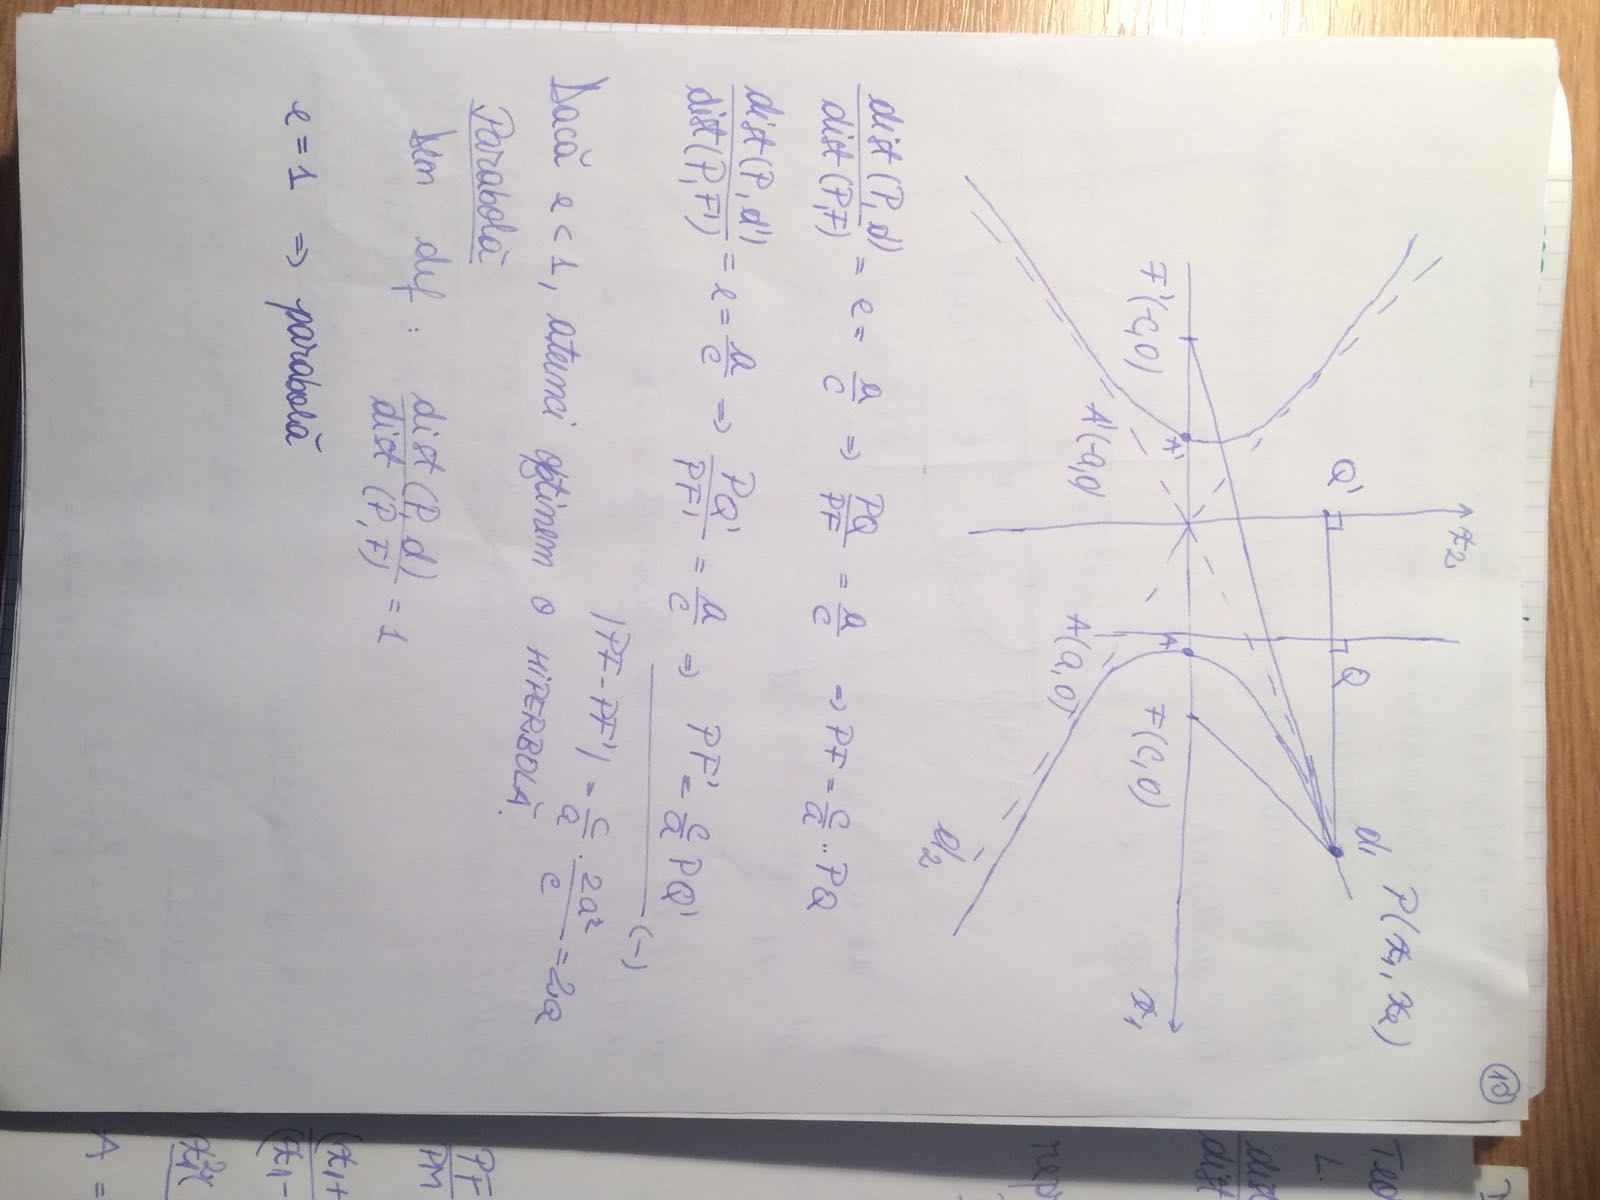 10
x₂
d₁ P(x₁, x₂)
Q' Q
F'(-c,0) A' A F(c,0) x₁
A'(-a,0) A(a,0)
d₂
dist(P,d)/dist(P,F) = e = a/c ⇒ PQ/PF = a/c ⇒ PF = c/a · PQ
dist(P,d')/dist(P,F') = e = a/c ⇒ PQ'/PF' = a/c ⇒ PF' = c/a PQ'
(-)
|PF - PF'| = c/a · 2a²/c = 2a
Dacă e < 1, atunci obținem o HIPERBOLĂ.
Parabolă
Din def : dist(P,d)/dist(P,F) = 1
e = 1 ⇒ parabolă
Teo
L
dis
dist
rep
PF
PM
(x₁+
(x₁-
A =